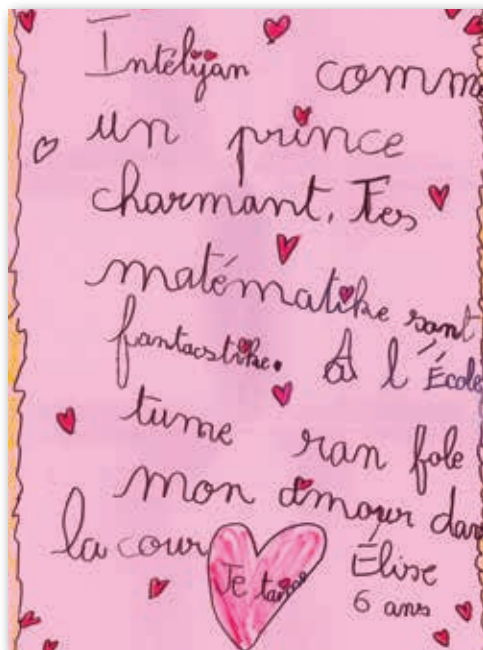 Intélijan comme
un prince
charmant. Tes
matématike sont
fantastike. À l'École
tume ran fole
mon amour dans
la cour
Je taime
Élise
6 ans